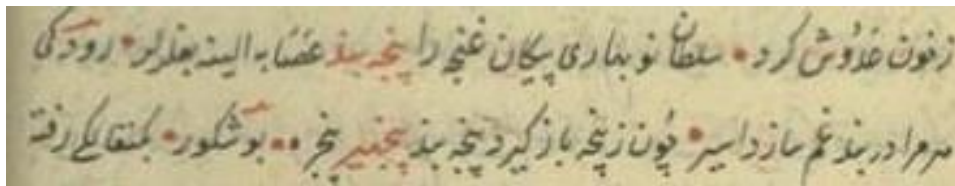 زخون غلاوش کرد • سلطان نو بهاری پیکان غنچه را پنجه بند عصابه الینه بغلرلر • رودکی
مرمرا در بند غم سازد اسیر • چون ز پنجه باز کیرد پنجه بند پنجیر پنجر •• بو شکور •